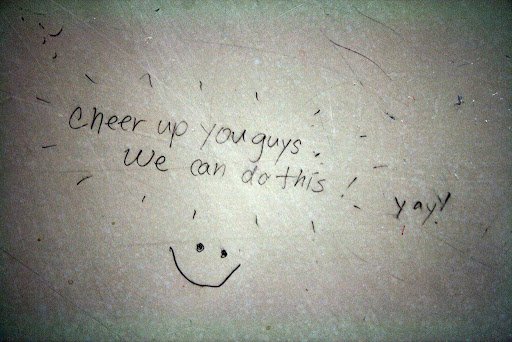 cheer up you guys.
We can do this!
yay!